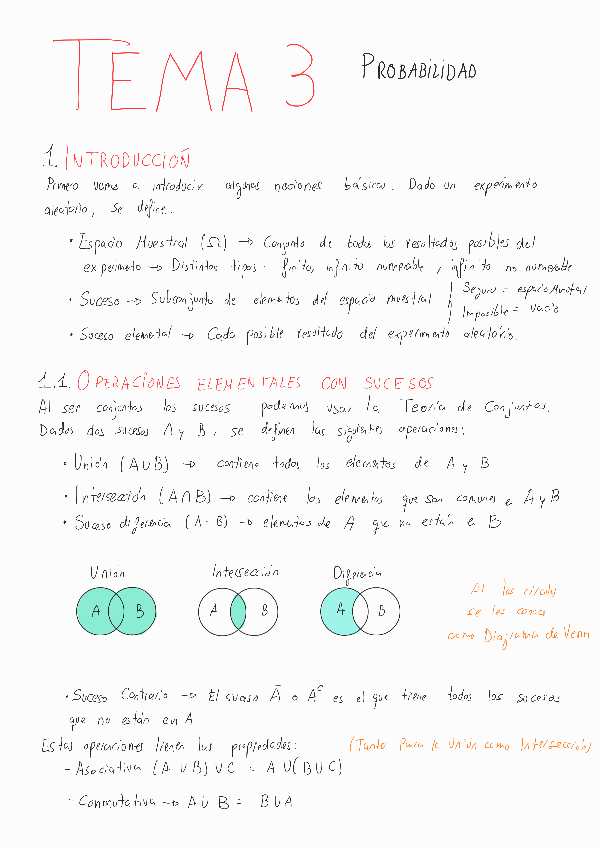 TEMA 3 PROBABILIDAD
1. INTRODUCCIÓN
Primero vamos a introducir algunas nociones básicas. Dado un experimento
aleatorio, se define:
· Espacio Muestral (Ω) → Conjunto de todos los resultados posibles del
experimeto → Distintos tipos: finito, infinito numerable, infinito no numerable
· Suceso → Subconjunto de elementos del espacio muestral | Seguro = espacio Muestral
Imposible = vacío
· Suceso elemental → Cada posible resultado del experimento aleatório.
1.1. OPERACIONES ELEMENTALES CON SUCESOS
Al ser conjuntos los sucesos podemos usar la Teoría de Conjuntos.
Dados dos sucesos A y B, se definen las siguientes operaciones:
· Unión (A∪B) → contiene todos los elementos de A y B
· Intersección (A∩B) → contiene los elementos que son comunes a A y B
· Suceso diferencia (A-B) → elementos de A que no están en B
Union Intersección Diferencia
A B A B A B
Al los círculos
se les conoce
como Diagrama de Venn
· Suceso Contrario → El suceso Ā o Aᶜ es el que tiene todos los sucesos
que no están en A
Estas operaciones tienen las propiedades: (Tanto para la Union como Intersección)
- Asociativa (A ∪ B) ∪ C = A ∪ (B ∪ C)
· Conmutativa → A ∪ B = B ∪ A